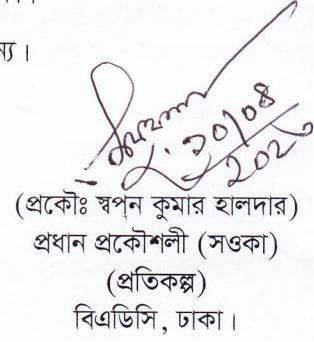 ন্য।
20/08
202
(প্রকৌঃ স্বপন কুমার হালদার)
প্রধান প্রকৌশলী (সওকা)
(প্রতিকল্প)
বিএডিসি, ঢাকা।